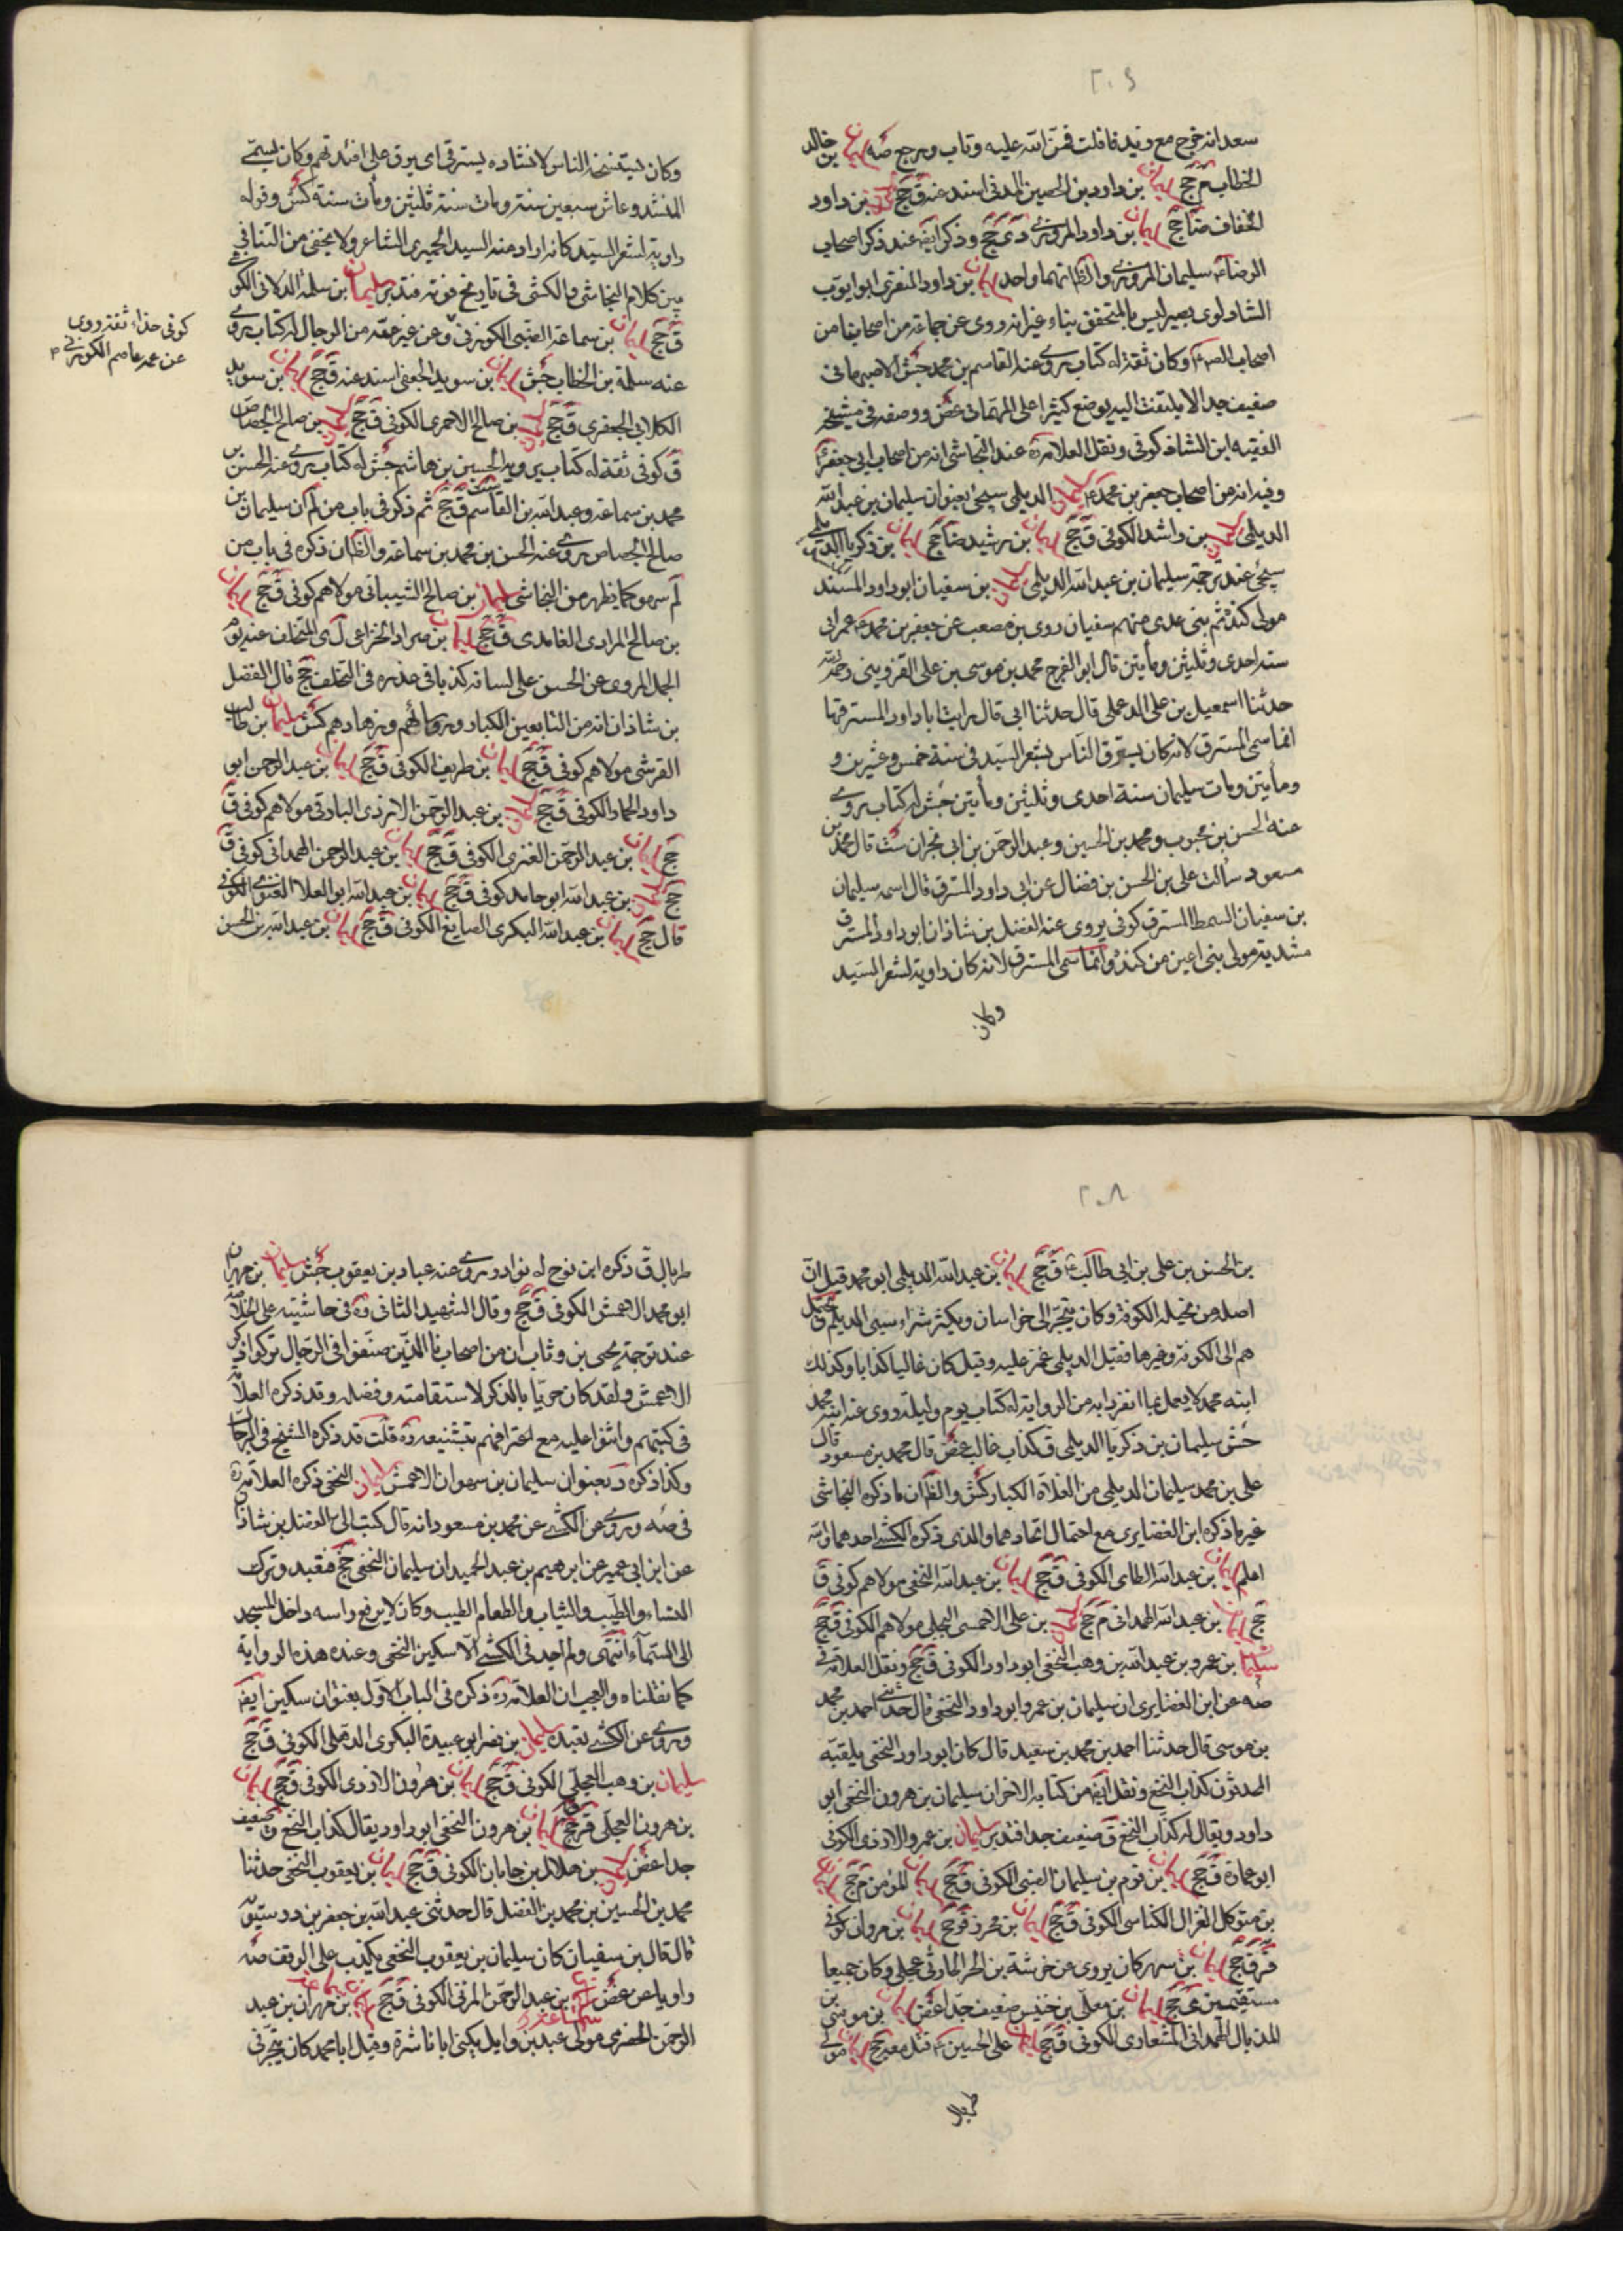 ٢٠٤
سعد انه خرج مع زيد فافلت فمن الله عليه وتاب ورجع صه سليمان بن خالد
الخطاب م جخ سليمان بن داود بن الحصين المدني اسند عنه ق جخ سليمان بن داود
الخفاف ضا جخ سليمان بن داود المروزي دى جخ وذكر ايضا عند ذكر اصحاب
الرضا سليمان المروزي والظ انهما واحد سليمان بن داود المنقري ابو ايوب
الشاذكوني بصري ليس بالمتحقق بنا غير انه روى عن جماعة من اصحابنا من
اصحاب الص وكان ثقة له كتاب يروى عنه القاسم بن محمد جش الاصبهاني
ضعيف جدا لا يلتفت اليه يوضع كثيرا على المهمات غض ووصفه في مشيخة
الفقيه ابن الشاذكوني ونقل العلامة عند النجاشي انه من اصحاب ابي جعفر
وفيه انه من اصحاب جعفر بن محمد سليمان الديلمي سيجئ بعنوان سليمان بن عبد الله
الديلمي سليمان بن راشد الكوفي ق جخ سليمان بن رشيد ضا جخ سليمان بن زكريا الديلمي
سيجئ عند ترجمة سليمان بن عبد الله الديلمي سليمان بن سفيان ابو داود المسترق
مولى كندة ثم بني عدي منهم سفيان روى بن مصعب عن جعفر بن محمد عمر الى
سنة احدى وثلثين ومأتين قال ابو الفرج محمد بن موسى بن علي القزويني رحمه الله
حدثنا اسمعيل بن علي الدعبلي قال حدثنا ابي قال رايت ابا داود المسترق
انما سمى المسترق لانه كان يسترق الناس بشعر السيد في سنة خمس وعشرين و
ومأتين ومات سليمان سنة احدى وثلثين ومأتين جش له كتاب يروى
عنه الحسن بن محبوب ومحمد بن الحسين وعبد الرحمن بن ابي نجران ست قال محمد بن
مسعود سألت علي بن الحسن بن فضال عن ابي داود المسترق قال اسمه سليمان
بن سفيان السمط المسترق كوفي يروى عنه الفضل بن شاذان ابو داود المسترق
مشددة مولى بني اعين من كندة وانما سمى المسترق لانه كان راوية لشعر السيد
وكان
وكان يستخفه الناس لانشاده يسترق اى يرق على افئدتهم وكان يسمى
المنشد وعاش سبعين سنة ومات سنة ثلثين ومأت سنة كش وقوله
راوية لشعر السيد كانه اراد منه السيد الحميري الشاعر ولا يخفى من التنافي
بين كلام النجاشي والكشي في تاريخ فوته فتدبر سليمان بن سلمة اللاني الكو
ق جخ سليمان بن سماعة الضبي الكوزي وعن غير عمه من الرجال له كتاب يروى
عنه سلمة بن الخطاب جش سليمان بن سويد الجعفي اسند عنه ق جخ سليمان بن سويد
الكلابي الجعفري ق جخ سليمان بن صالح الاحمري الكوفي ق جخ سليمان بن صالح الجصاص
ق كوفي ثقة له كتاب يرويه الحسين بن هاشم جش له كتاب يروى عنه الحسن بن
محمد بن سماعة وعبد الله بن القاسم ق جخ ثم ذكر في باب من لم ان سليمان بن
صالح الجصاص يروى عنه الحسن بن محمد بن سماعة والظ ان ذكره في باب من
لم سهو كما يظهر من النجاشي سليمان بن صالح الشيباني مولاهم كوفي ق جخ سليمان
بن صالح المرادي الغامدي ق جخ سليمان بن صراد الخزاعي ل ى المتخلف عنه يوم
الجمل المروى عن الحسن على لسانه كذبا في عذره في التخلف جخ قال الفضل
بن شاذان انه من التابعين الكبار ورؤسائهم وزهادهم كش سليمان بن طالب
القرشي مولاهم كوفي ق جخ سليمان بن طريف الكوفي ق جخ سليمان بن عبد الرحمن ابو
داود الحمار الكوفي ق جخ سليمان بن عبد الرحمن الازدي البارقي مولاهم كوفي ق
جخ سليمان بن عبد الرحمن العنزي الكوفي ق جخ سليمان بن عبد الرحمن الهمداني كوفي ق
جخ سليمان بن عبد الله ابو حامد كوفي ق جخ سليمان بن عبد الله ابو العلا الغنوي الكوفي
قال جخ سليمان بن عبد الله البكري الصايغ الكوفي ق جخ سليمان بن عبد الله بن الحسن
كوفي حذاء ثقة روى
عن عمه عاصم الكوزي
٢٠٨
بن الحسن بن علي بن ابي طالب ق جخ سليمان بن عبد الله الديلمي ابو محمد قيل ان
اصله من بجيلة الكوفة وكان يتجر الى خراسان ويكثر شراء سبي الديلم و يحمل
هم الى الكوفة وغيرها فقيل الديلمي غمز عليه وقيل كان غاليا كذابا وكذلك
ابنه محمد لا يعمل بما انفردا به من الرواية له كتاب يوم وليلة روى عنه ابنه محمد
جش سليمان بن زكريا الديلمي ق كذاب غال غض قال محمد بن مسعود قال
علي بن محمد سليمان الديلمي من الغلاة الكبار كش والظ ان ما ذكره النجاشي
غير ما ذكره ابن الغضايري مع احتمال اتحادهما والذي ذكره الكشي احدهما والله
اعلم سليمان بن عبد الله الطاى الكوفي ق جخ سليمان بن عبد الله النخعي مولاهم كوفي ق
جخ سليمان بن عبد الله الهمداني م جخ سليمان بن علي الاحمسي البجلي مولاهم الكوفي ق جخ
سليمان بن عمرو بن عبد الله بن وهب النخعي ابو داود الكوفي ق جخ ونقل العلامة في
صه عن ابن الغضايري ان سليمان بن عمرو ابو داود النخعي قال حدثني احمد بن محمد
بن موسى قال حدثنا احمد بن محمد بن سعيد قال كان ابو داود النخعي يلقبه
المحدثون كذاب النخع ونقل ايضا من كتابه الاخر ان سليمان بن هرون النخعي ابو
داود ويقال له كذاب النخع ق ضعيف جدا فتدبر سليمان بن عمرو الازدي الكوفي
ابو عمارة ق جخ سليمان بن قوم بن سليمان الضبي الكوفي ق جخ سليمان المؤمن م جخ سليمان
بن متوكل الغزال الكناسي الكوفي ق جخ سليمان بن محرز ق جخ سليمان بن مروان كوفي
ق جخ سليمان بن مسهر كان يروى عن خرشة بن الحر الحارثي عجلي وكان جميعا
مستقيمين ى جخ سليمان بن معلى بن خنيس ضعيف جدا غض سليمان بن موسى بن
الذبال الهمداني المشعاري الكوفي ق جخ سليمان على الحسين قتل معه جخ سليمان مولى
طربال
طربال ق ذكره ابن نوح له نوادر روى عنه عباد بن يعقوب جش سليمان بن مهران
ابو محمد الاعمش الكوفي ق جخ وقال الشهيد الثاني في حاشيته على الخلاصة
عند ترجمة يحيى بن وثاب ان من اصحابنا الذين صنفوا في الرجال تركوا ذكر
الاعمش ولقد كان حريا بالذكر لاستقامته وفضله وقد ذكره العلامة
في كتبهم واثنوا عليه مع اعترافهم بتشيعه قلت قد ذكره الشيخ في الرجال
وكذا ذكره د بعنوان سليمان بن مهران الاعمش سليمان النخعي ذكره العلامة
في صه وروى عن الكشي عن محمد بن مسعود انه قال كتب الى الفضل بن شاذان
عن ابن ابي عمير عن ابرهيم بن عبد الحميد ان سليمان النخعي حج فتعبد وترك
النساء والطيب والثياب والطعام الطيب وكان لا يرفع راسه داخل المسجد
الى السماء انتهى ولم اجد في الكشي الا سكين النخعي وعنده هذه الرواية
كما نقلناه والعجب ان العلامة ذكره في الباب الاول بعنوان سكين ايضا
وروى عن الكشي تعبده سليمان بن نصر ابو عبيدة البكري الذهلي الكوفي ق جخ
سليمان بن وهب العجلي الكوفي ق جخ سليمان بن هرون الازدي الكوفي ق جخ سليمان
بن هرون العجلي ق جخ سليمان بن هرون النخعي ابو داود يقال كذاب النخع ق ضعيف
جدا غض سليمان بن هلال بن جابان الكوفي ق جخ سليمان بن يعقوب النخعي حدثنا
محمد بن الحسين بن محمد بن الفضل قال حدثني عبد الله بن جعفر بن درستويه
قال قال بن سفيان كان سليمان بن يعقوب النخعي يكذب على الوقف صه
غض بن عبد الرحمن المزني الكوفي ق جخ بن مهران بن عبد
الرحمن الحضرمي مولى عبد بن وايل يكنى ابا ناشرة وقيل ابا محمد كان يتجر في